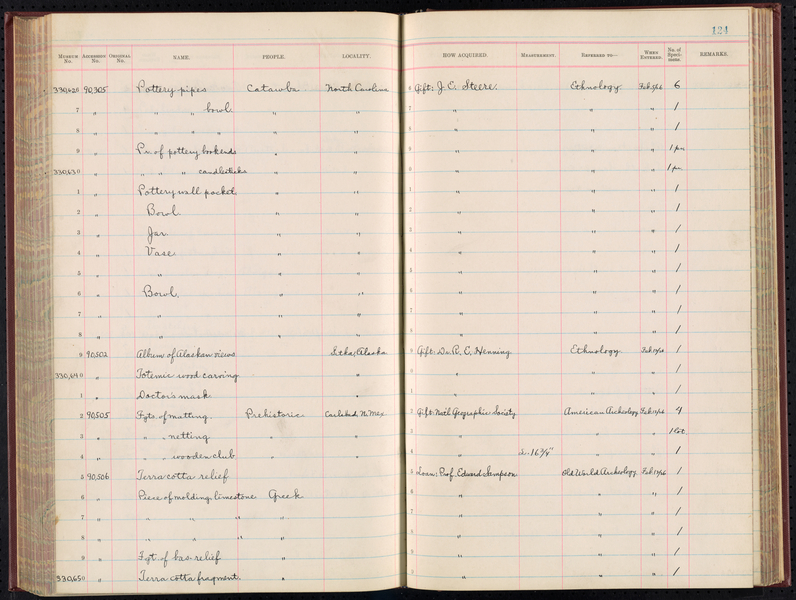 124
MUSEUM No. ACCESSION No. ORIGINAL No. NAME. PEOPLE. LOCALITY. HOW ACQUIRED. MEASUREMENT. REFERRED TO— WHEN ENTERED. No. of Specimens. REMARKS.
330,620 90,305 Pottery pipes Catawba North Carolina 0 Gift: J. C. Steere. Ethnology. 6
7 " " " bowl. " " 7 " " " 1
8 " " " " " " 8 " " " 1
9 " Pr. of pottery bookends " " 9 " " " 1 pr.
330,630 " " " " candlesticks " " 0 " " " 1 pr.
1 " Pottery wall pocket " " 1 " " " 1
2 " Bowl " " 2 " " " 1
3 " Jar " " 3 " " " 1
4 " Vase " " 4 " " " 1
5 " " " " 5 " " " 1
6 " Bowl. " " 6 " " " 1
7 " " " " 7 " " " 1
8 " " " " 8 " " " 1
9 90,502 Album of Alaskan views Sitka, Alaska 9 Gift: Dr. R. C. Henning. Ethnology. 1
330,640 " Totemic wood carving " 0 " " " 1
1 " Doctor's mask " 1 " " " 1
2 90,505 Fgts. of matting. Prehistoric Carlsbad N. Mex. 2 Gift: Nat'l Geographic Society American Archeology 4
3 " " " netting " " 3 " " " 1 lot.
4 " " " wooden club " " 4 " 16 3/4" " " 1
5 90,506 Terra cotta relief 5 Loan: Prof. Edward Sempson Old World Archeology. 1
6 " Piece of molding, limestone Greek 6 " " " 1
7 " " " " " 7 " " " 1
8 " " " " " 8 " " " 1
9 " Fgt. of bas relief " 9 " " " 1
330,650 " Terra cotta fragment. " " " " 1